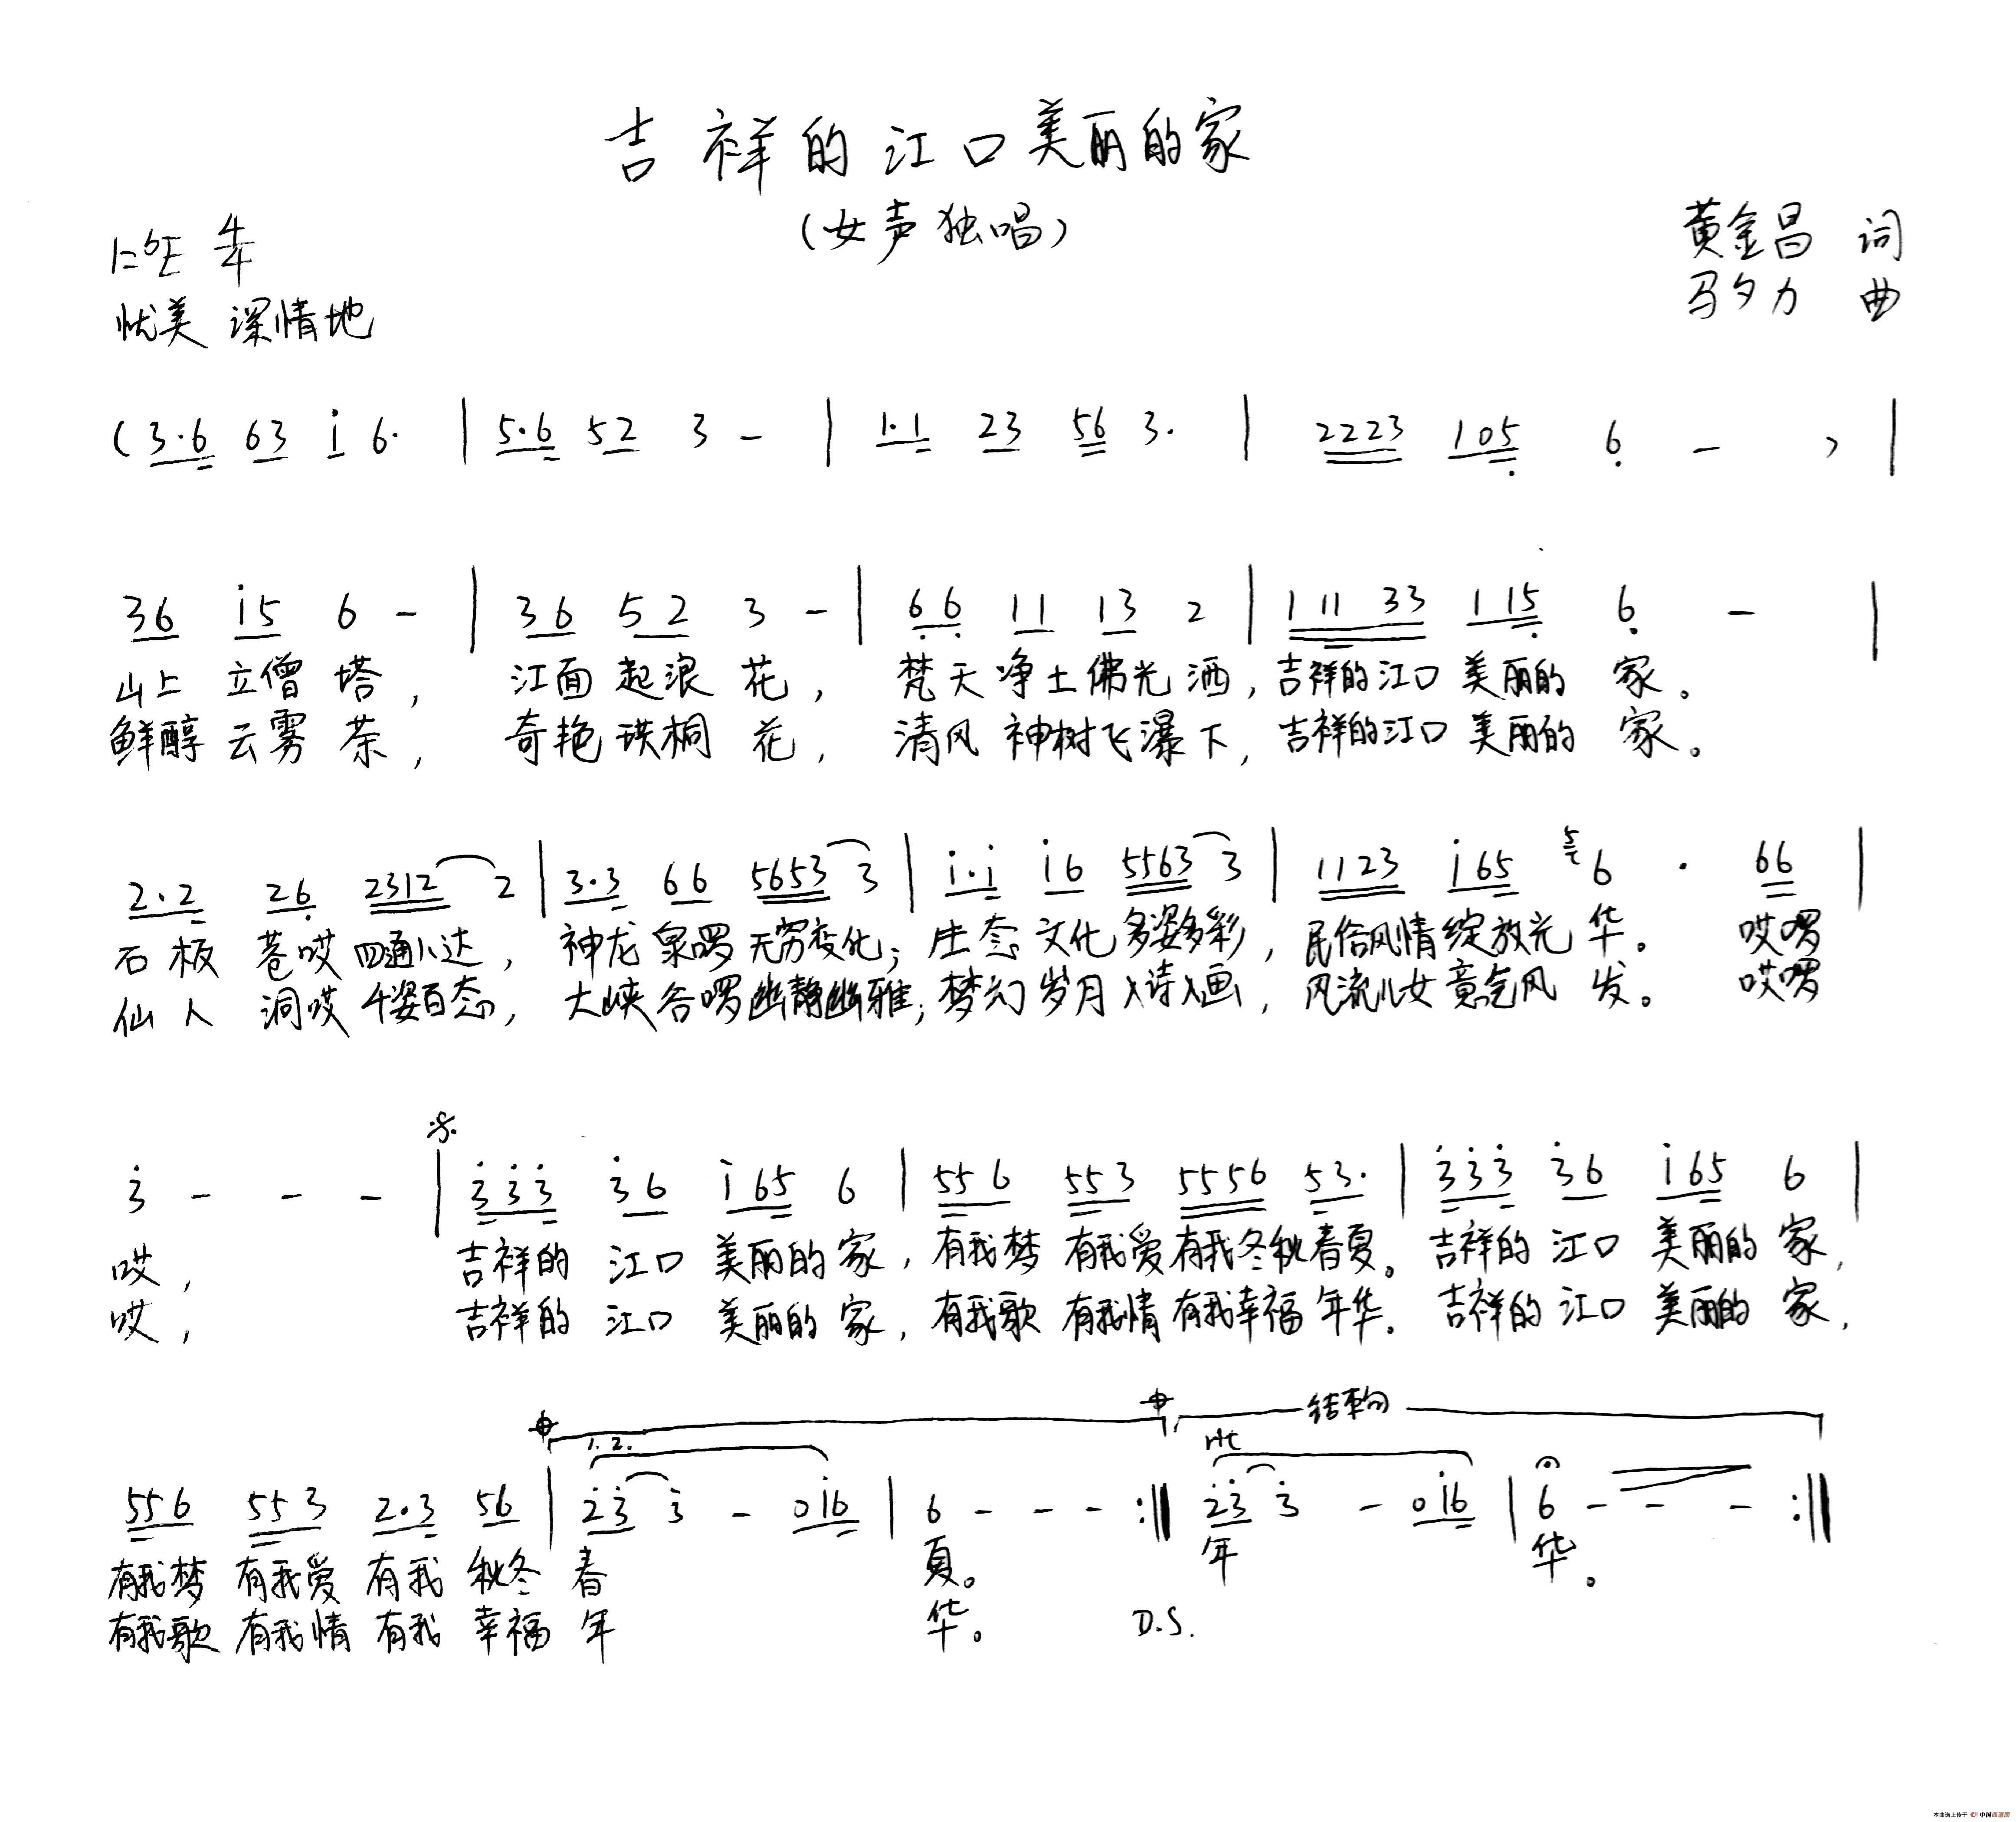 吉祥的江口美丽的家
（女声独唱）
1=♭E 4/4
黄金昌 词
优美 深情地
马夕力 曲
(3·6 63 i 6· | 5·6 52 3 - | 1·1 23 56 3· | 2223 105 6 - ) |
36 i5 6 - | 36 52 3 - | 66 11 13 2 | 11133 115 6 - |
山上 立僧 塔， 江面 起浪 花， 梵天净土佛光洒，吉祥的江口 美丽的 家。
鲜醇 云雾 茶， 奇艳 珙桐 花， 清风 神树飞瀑下，吉祥的江口 美丽的 家。
2·2 26 2312 2 | 3·3 66 5653 3 | i·i i6 5563 3 | 1123 i65 5 6 · 66 |
石板 苍哎 四通八达， 神龙 泉啰 无穷变化；生态 文化 多姿多彩，民俗风情绽放光 华。 哎啰
仙人 洞哎 千姿百态， 大峡 谷啰幽静幽雅；梦幻 岁月 入诗入画，风流儿女 意气风 发。 哎啰
3 - - - | 333 36 i65 6 | 556 553 5556 53· | 333 36 i65 6 |
哎， 吉祥的 江口 美丽的 家，有我梦 有我爱 有我冬秋春夏。 吉祥的 江口 美丽的 家，
哎， 吉祥的 江口 美丽的 家，有我歌 有我情 有我幸福 年华。 吉祥的 江口 美丽的 家，
结束句
1. 2. rit
556 553 2·3 56 | 23 3 - 0i6 | 6 - - - :‖ 23 3 - 0i6 | 6 - - - :‖
有我梦 有我爱 有我 秋冬 春 夏。 年 华。
有我歌 有我情 有我 幸福 年 华。 D.S.
本曲谱上传于 中国曲谱网